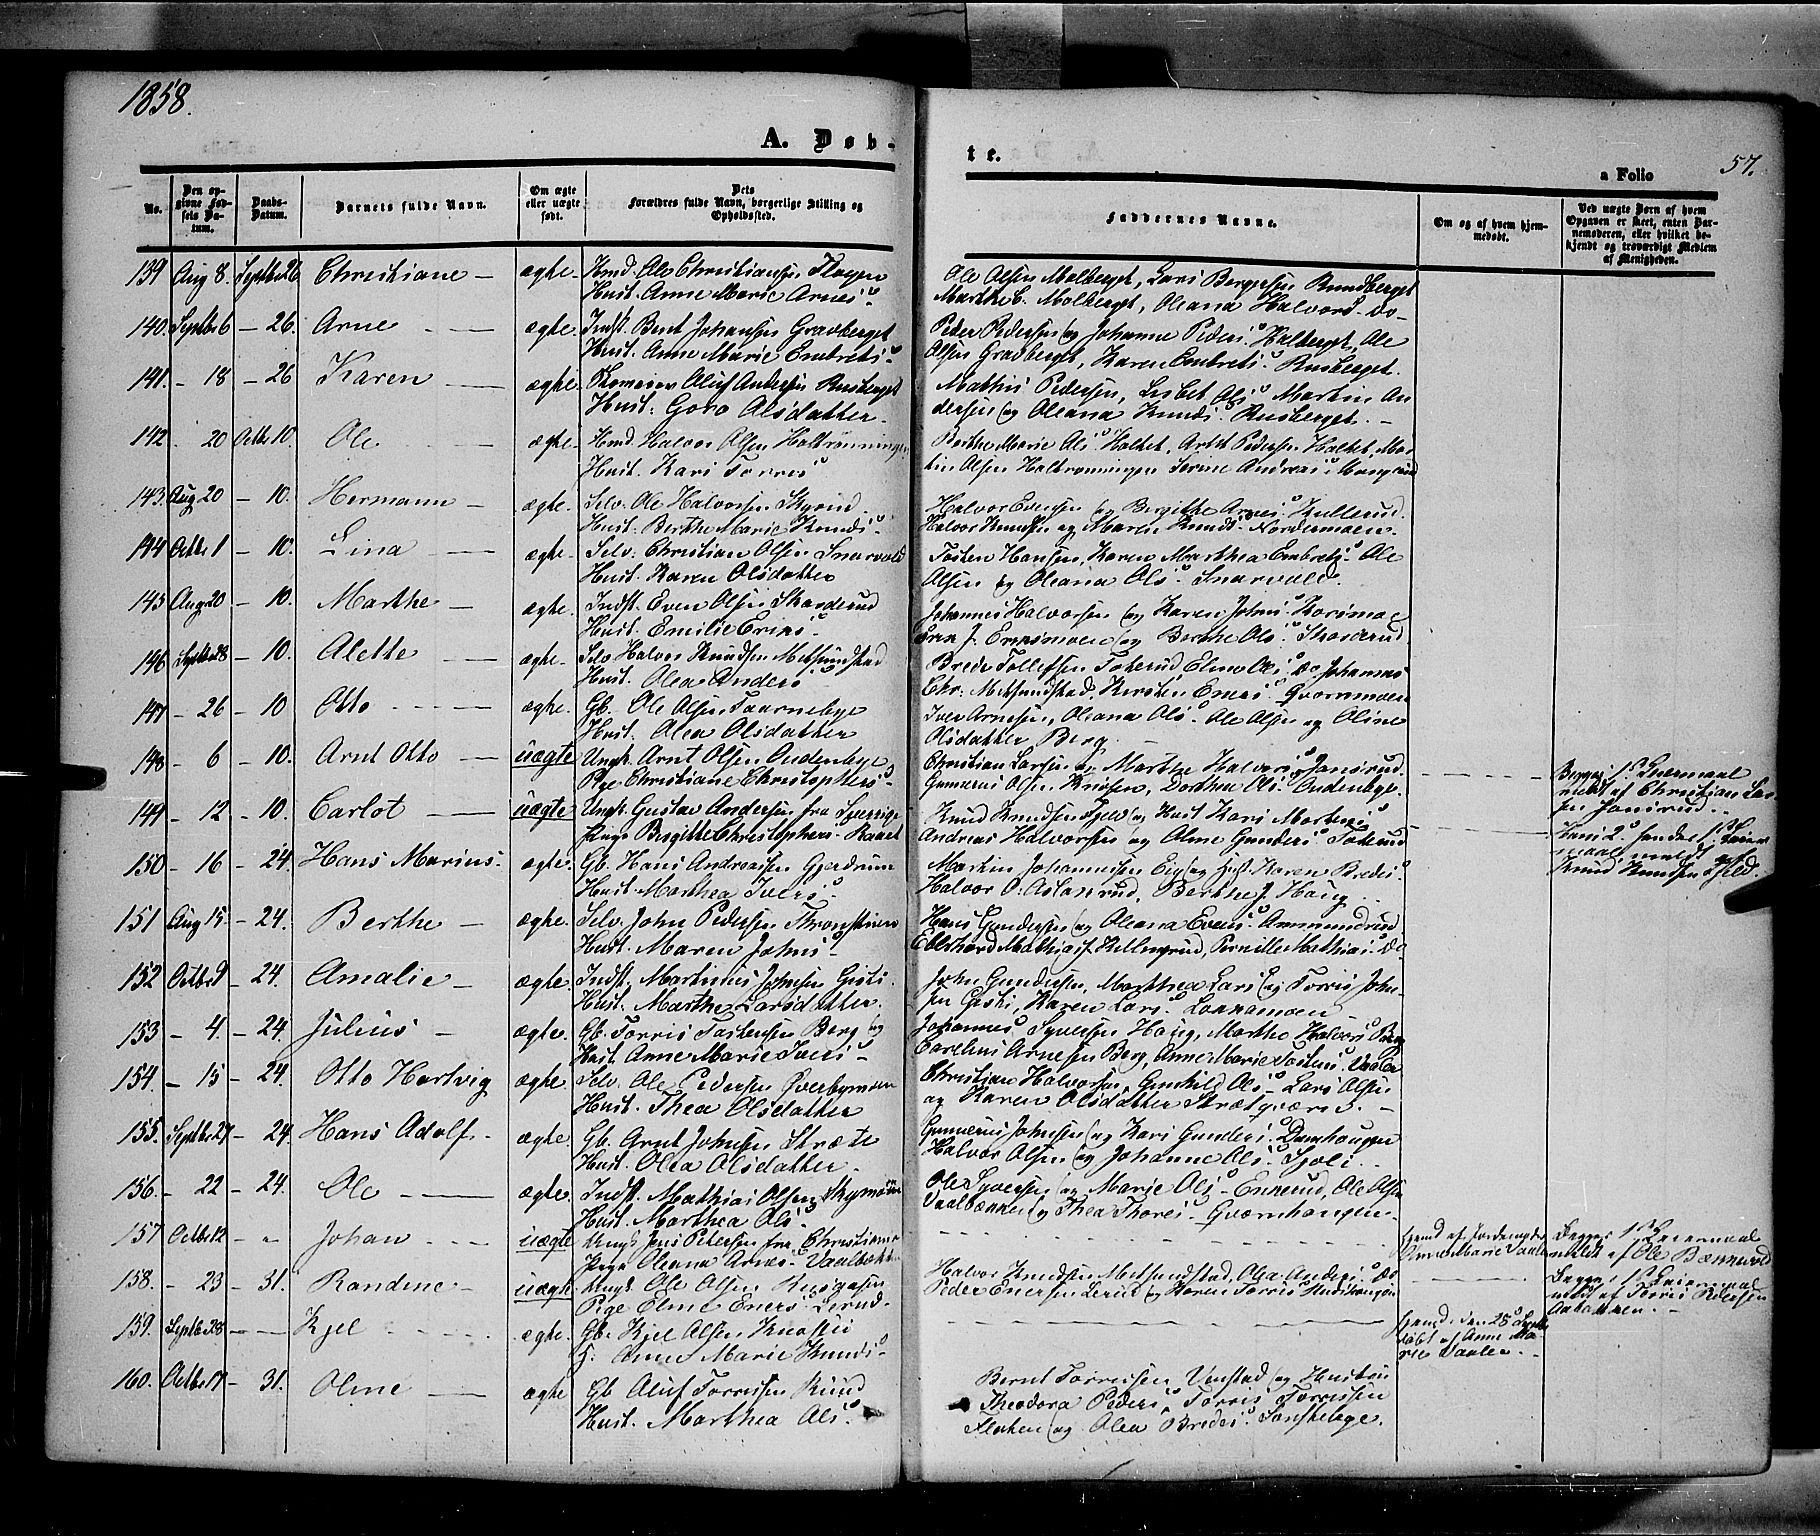 1858.
A. Døb-
te.
a Folio
57.
No.
Den opgivne Fødsels Datum.
Daabs-Datum.
Barnets fulde Navn.
Om ægte eller uægte født.
Dets Forældres fulde Navn, borgerlige Stilling og Opholdssted.
Faddernes Navne.
Om og af hvem hjemmedøbt.
Ved uægte Børn af hvem Opgaven er skeet, enten Barnemoderen, eller hvilket bekjendt og troværdigt Medlem af Menigheden.
139 Aug 8 Septbr 26 Christiane ægte Hmd. Ole Christiansen Flagen
Hust. Anne Marie Arnes
Ole Olsen Molberget, Lars Bergersen Rundberget
Marthe C. Molberget, Oleana Halvors. do
140. Septbr 6 - 26. Arne ægte. Indst. Bent Johansen Gravberget
Hust. Anne Marie Embrets
Peder Pedersen og Johanne Peders. Halberget, Ole
Olsen Gravberget, Karen Embrets. Rusberget.
141 - 18 - 26 Karen ægte Oluf Andersen Rusberget
Hust. Goro Olsdatter
Mathis Pedersen, Lisbet Ols. Martin An
dersen og Oleana Knuds. Rusberget.
142 20 Octbr 10. Ole ægte. Hmd. Halvor Olsen Holtrønningen
Hust. Kari Torris
Berthe Marie Ols. Holtet, Pedersen Holtet, Mar
tin Olsen Holtrønningen Andreas.
143. Aug 20 - 10. Hermann ægte. Selv. Ole Halvorsen Skyrud
Hust. Berthe Marie Knuds
Halvor Evensen og Birgithe Arnes. Kulterud.
Halvor Knudsen og Maren Knuds. Nordermoen.
144 Octbr 1 - 10. Lina ægte. Selv. Christian Olsen Snarvold
Hust. Karen Olsdatter
Tosten Hansen, Karen Marthea Embrets. Ole
Olsen og Oleana Ols. Snarvold
145 Aug 20 - 10. Marthe ægte. Indst. Even Olsen Skarderud
Hust. Emilie Eriks.
Johannes Halvorsen og Karen Johns. Korsmoe
Eriksmoen og Berthe Ols. Skarderud
146 Septbr 28 - 10. Alette ægte. Selv. Halvor Knudsen Melsundstad
Hust. Olea Anders
Brede Tollefsen Toterud, Eline Ols. do Johannes
Chr. Melsundstad, Kersten Eners. Qvernmoen
147 - 26 - 10 Otto ægte. Gb. Ole Olsen Taarnebye
Hust. Olea Olsdatter
Iver Arnesen, Oleana Ols. Ole Olsen og Oline
Olsdatter Berg
148 - 6 - 10. Arnt Otto uægte Ungk. Arnt Olsen Oudenbye
Pige Christiane Christophers
Christian Larsen og Marthe Halvors. Jansrud.
Gunerius Olsen Knossen, Dorthea Ols. Oudenbye.
1ste Leiermaal
meldt af Christian Lar
sen Jansrud.
149 - 12 - 10. Carlot uægte Ungk. Gustav Andersen fra Sverrige
Pige Birgitte Christophers.
Knud Knudsen Gjeld og Hust. Kari Mortens
Andreas Halvorsen og Olme Gunders. Toterud
Hans 2. hendes 1ste Leier
maal meldt af
Knud Knudsen Gjeld.
150 - 16 - 24. Hans Marius. ægte. Gb. Hans Andreassen Gjerdrum
Hust. Marthea Ivers
Martin Johannessen og Karen Bredes.
Halvor O. Aslaksrud, Berthe J. Haug
151 Aug 15 - 24. Berthe ægte. Selv. John Pedersen Thronstuen
Hust. Maren Johns
Hans Gundersen og Oleana Evens. Ammundrud
Eberhard Mathias. Killingrud, Pernille Mathias. do
152 Octbr 9 - 24. Amalie ægte. Indst. Martinus Johnsen Gisti
Hust. Marthe Larsdatter.
John Gundersen, Marthea Lars. og Torris John-
sen Gisti, Karen Lars.
153 - 4. - 24. Julius ægte. Gb. Torris Tostensen Berg og
Hust. Anne Marie Ivers
Johannes Syversen Haug, Marthe Halvors. Berg
Carelius Arnesen Berg, Anne Marie Tostens. Vaaler
154. - 15 - 24. Otto Hartvig ægte. Selv. Ole Pedersen Øverbymoen
Hust. Thea Olsdatter
Christian Halvorsen, Gunhild Ols. Lars Olsen
og Karen Olsdatter
155. Septbr 27 - 24. Hans Adolf ægte. Gb. Arnt Johnsen Stræte
Hust. Olea Olsdatter
Gunerius Johnsen og Kari Gunders. Damhaugen
Halvor Olsen og Johanne Ols. Sjoli
156. - 22 - 24. Ole ægte. Indst. Mathias Olsen
Hust. Marthea Ols.
Ole Syversen og Marie Ols. Enkerud, Ole Olsen
Vaalbækken og Thea Thores. Qvernhaugen
157 Octbr 12 Johan uægte Ungk. Jens Petersen fra Christiania
Pige Oleana Arnes. Vaalbækken
hjemd. af Jordemoder
Anne Marie Vaaler
Begges 1ste Leiermaal
meldt af Ole
158. - 23 - 31. Randine uægte Ungk. Ole Olsen
Pige Eline Eners. Lerud
Halvor Knudsen Melsundstad, Olea Anders. do
Peder Enersen Lerud og Karen Torris
Begges 1ste Leiermaal
meldt af Torris Pedersen
159. Septbr 28 Kjel ægte. Gb. Kjel Olsen Knossen
H. Anne Marie Knuds
hjemd. den 28 Septbr
døbt af Anne Ma
rie Vaaler.
160. Octbr 17 - 31. Olme ægte Gb. Oluf Torrissen Rund
Hust. Marthea Ols.
Bernt Torrissen Vænstad og Hustru
Theodora Peders. Torris Torrissen
Floten og Olea Bredes. Sønstebye.